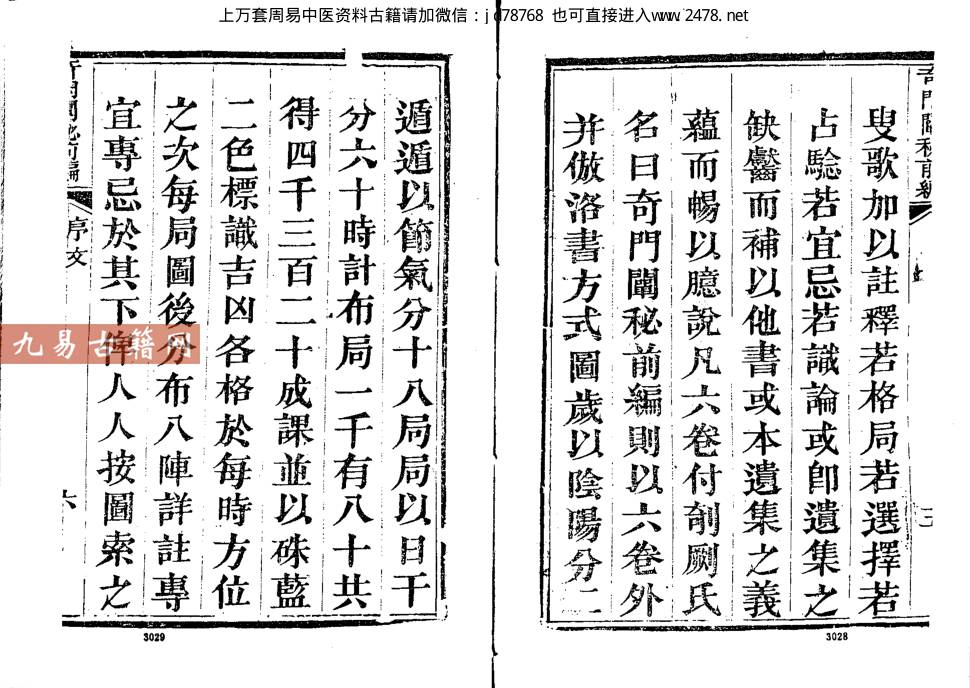 上万套周易中医资料古籍请加微信：jd78768 也可直接进入www.2478.net
叟歌加以註釋若格局若選擇若
占驗若宜忌若識論或卽遺集之
缺齾而補以他書或本遺集之義
蘊而暢以臆說凡六卷付剞劂氏
名曰奇門闡秘前編則以六卷外
并倣洛書方式圖歲以陰陽分二
3028
遁遁以節氣分十八局局以日干
分六十時計布局一千有八十共
得四千三百二十成課並以硃藍
二色標識吉凶各格於每時方位
之次每局圖後分布八陣詳註專
宜專忌於其下俾人人按圖索之
序文
六
九易古籍网
3029